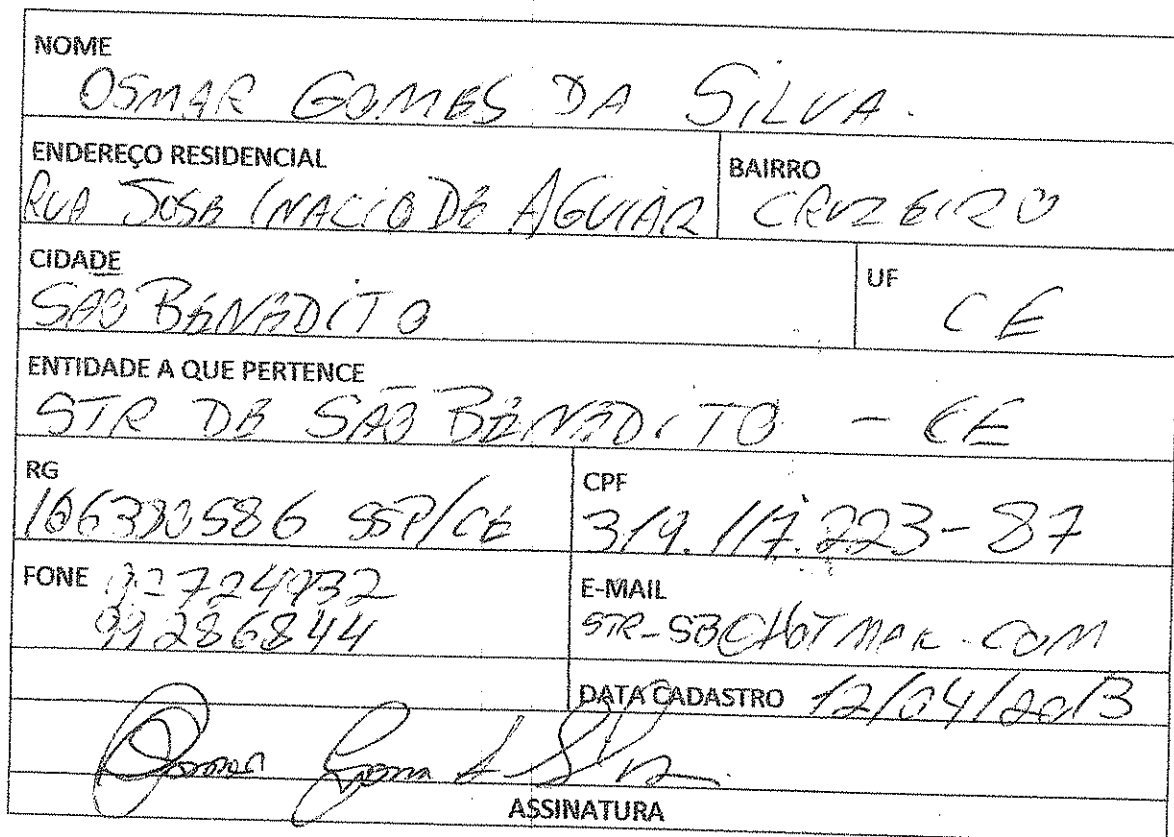 NOME
OSMAR GOMES DA SILVA.
ENDEREÇO RESIDENCIAL
RUA JOSE INACIO DE AGUIAR
BAIRRO
CRUZEIRO
CIDADE
SÃO BENEDITO
UF
CE
ENTIDADE A QUE PERTENCE
STR DE SÃO BENEDITO - CE
RG
106380586 SSP/CE
CPF
319.117.223-87
FONE
99286844
E-MAIL
STR-SB@HOTMAIL.COM
DATA CADASTRO 12/04/2013
Osmar Gomes da Silva
ASSINATURA